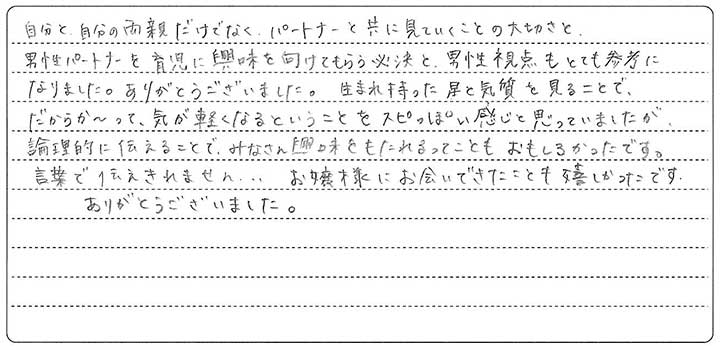 自分と、自分の両親だけでなく、パートナーと共に見ていくことの大切さと、
男性パートナーを育児に興味を向けてもらう必決と、男性視点もとても参考に
なりました。ありがとうございました。 生まれ持った星と気質を見ることで、
だからか〜って、気が軽くなるということをスピっぽい感じと思っていましたが、
論理的に伝えることで、みなさん興味をもたれるってことも おもしろかったです。
言葉で伝えきれません... お嬢様にお会いできたことも嬉しかったです。
ありがとうございました。